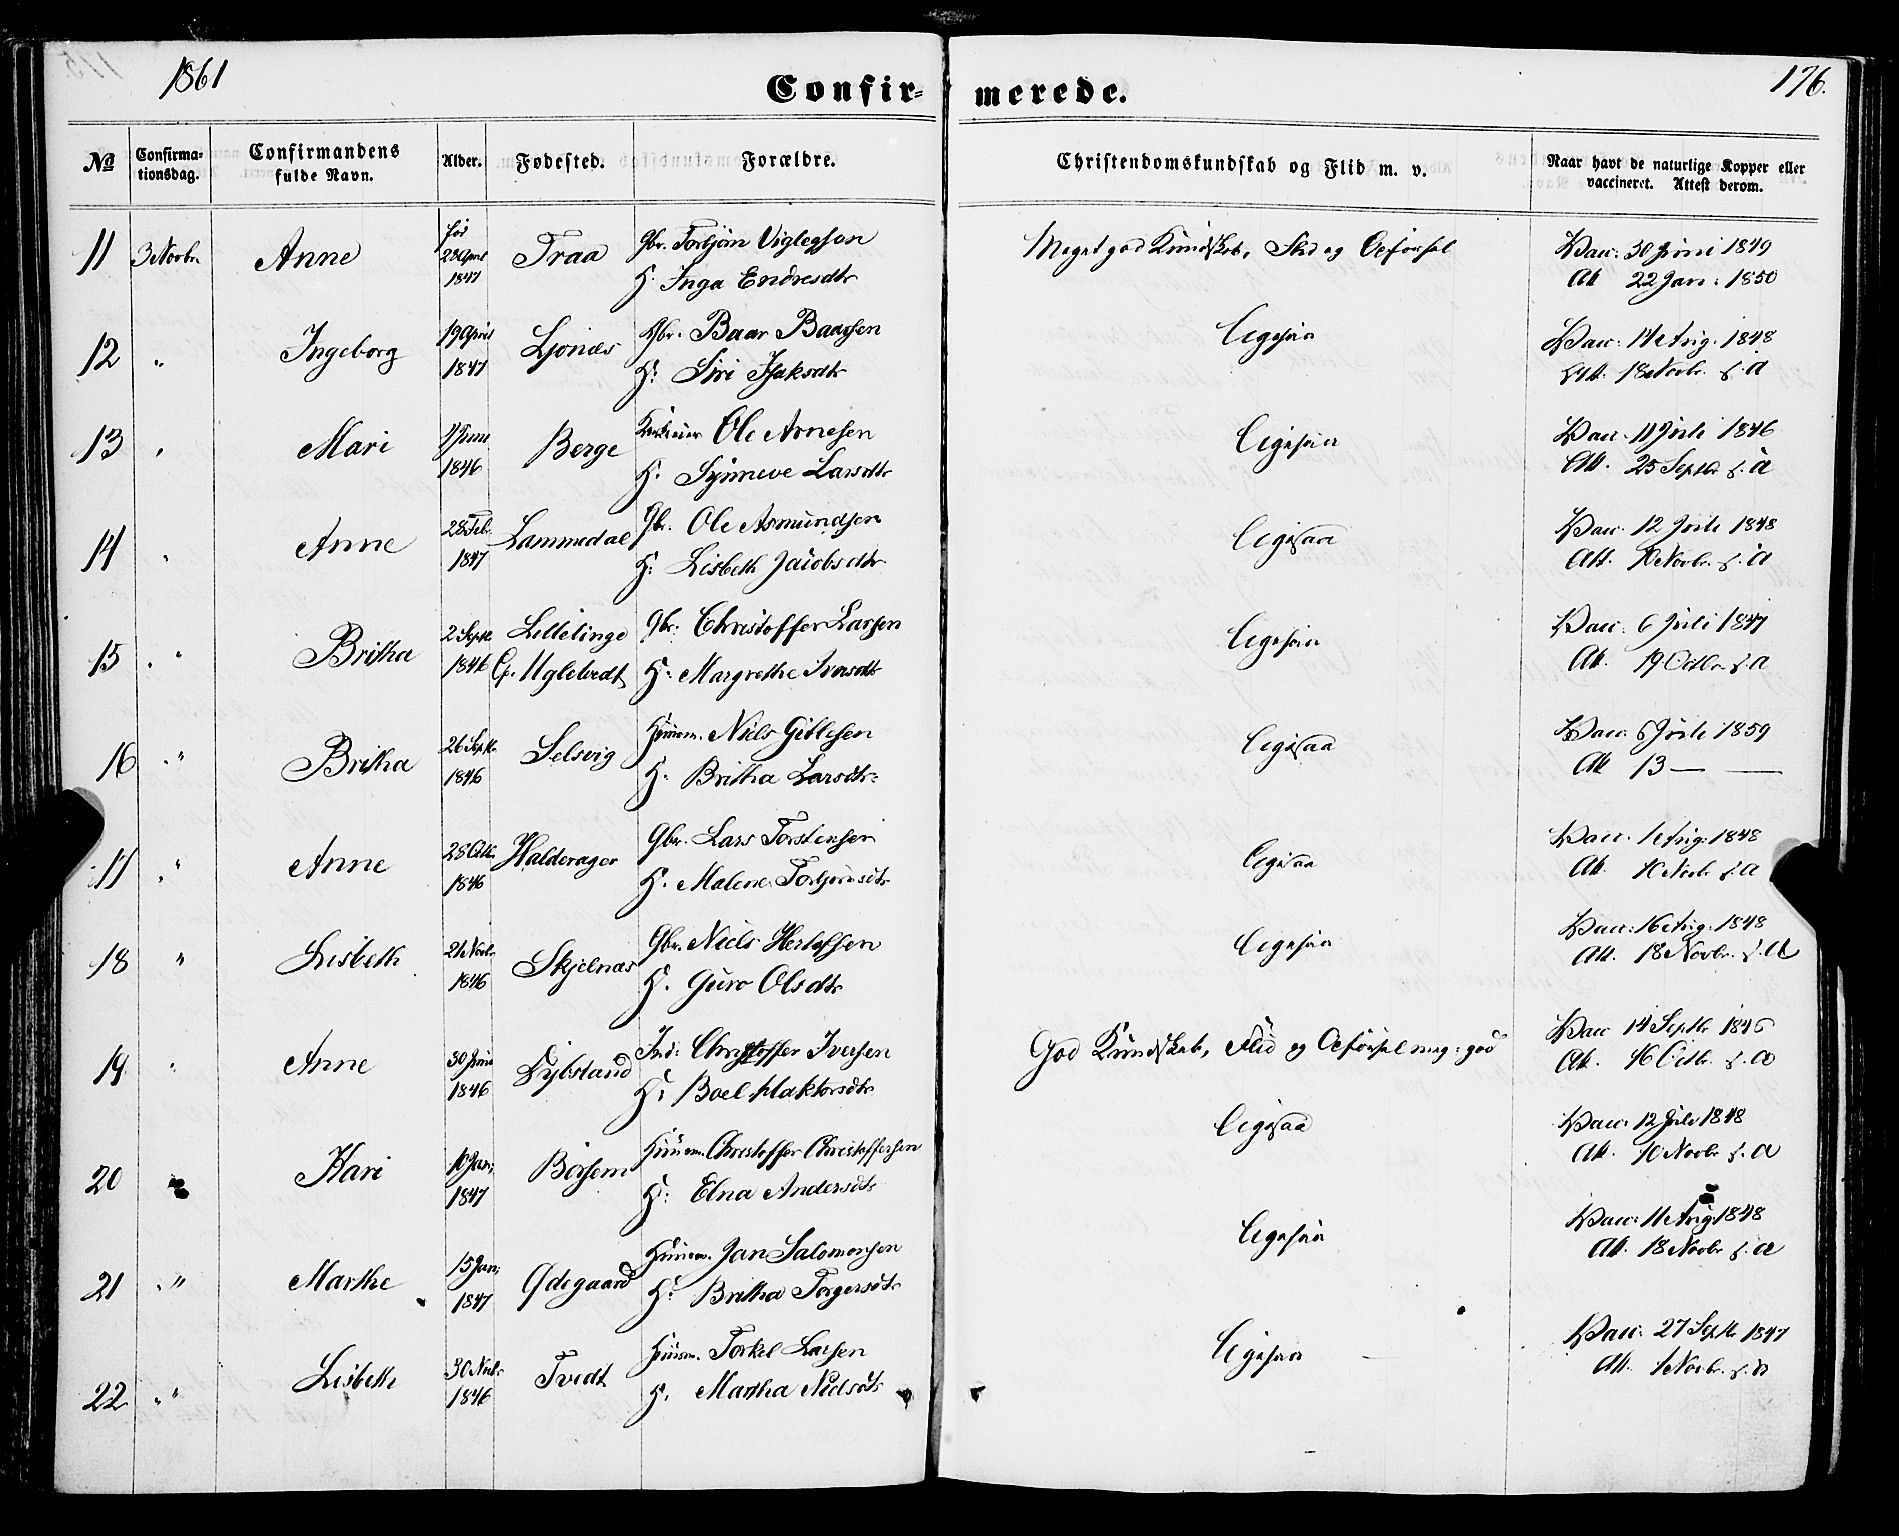 1861
Confir-
merede.
176.
No
Confirma-
tionsdag.
Confirmandens
fulde Navn.
Alder.
Fødested.
Forældre.
Christendomskundskab og Flid m. v.
Naar havt de naturlige Kopper eller
vaccineret. Attest derom.
11 3 Novbr Anne 23 April 1847 Traa Gbr. Torbjörn Viglegsen
H. Inga Endresdtr
Meget god Kundskab, Flid og Opførsel
Vacc: 30 Juni 1849
Att 22 Jan: 1850
12 " Ingeborg 19 April 1847 Ljones Gbr. Baar Baarsen
H: Siri Isaksdtr
Ligesaa
Vacc: 14 Aug: 1848
Att. 18 Novbr. s. a
13 " Mari Juni 1846 Berge Ole Arnesen
H. Synneve Larsdtr
Ligesaa
Vacc: 11 Juli 1846
Att. 25 Septbr s. a
14 " Anne 28 Feb. 1847 Lammedal Gbr. Ole Asmundsen
H: Lisbeth Jacobsdtr
Ligesaa
Vacc: 12 Juli 1848
Att. 10 Novbr. s. a
15 " Britha 2 Septr. 1846 Lillelinge Gbr: Christoffer Larsen
Op. Ugletvedt H: Margrethe Iversdtr
Ligesaa
Vacc: 6 Juli 1847
Att. 19 Octbr s. a
16 " Britha 26 Septr. 1846 Selsvig Huusm. Niels Gitlesen
H. Britha Larsdtr
Ligesaa
Vacc: 6 Juli 1859
Att 13 — —
17 " Anne 28 Octbr. 1846 Halderager Gbr. Lars Torstensen
H. Malene Torbjørnsdtr
Ligesaa
Vacc. 1 Aug: 1848
Att. 10 Novbr s. a
18 " Lisbeth 21 Novbr 1846 Skjelnæs Gbr. Niels Herlofsen
H. Guro Olsdtr
Ligesaa
Vacc: 16 Aug: 1848
Att. 18 Novbr. s. a
19 " Anne 30 Juni 1846 Dybsland Ind: Christoffer Iversen
H: Boel Haktorsdtr
God Kundskab, Flid og Opførsel meg: god
Vacc 14 Septbr 1846
Att. 16 Octbr. s. a
20 " Kari 10 Jan: 1847 Börsem Huusm. Christoffer Christoffersen
H: Elna Andersdtr
Ligesaa
Vacc: 12 Juli 1848
Att. 10 Novbr s. a
21 " Marthe 15 Jan: 1847 Ødegaard Huusm. Jan Salomonsen
H: Britha Torgersdtr
Ligesaa
Vacc: 11 Aug: 1848
Att. 18 Novbr s. a
22 " Lisbeth 30 Novbr 1846 Tvedt Huusm. Torkel Larsen
H. Martha Nielsdtr
Ligesaa
Vacc: 27 Septbr 1847
Att. 1 Novbr. s. a